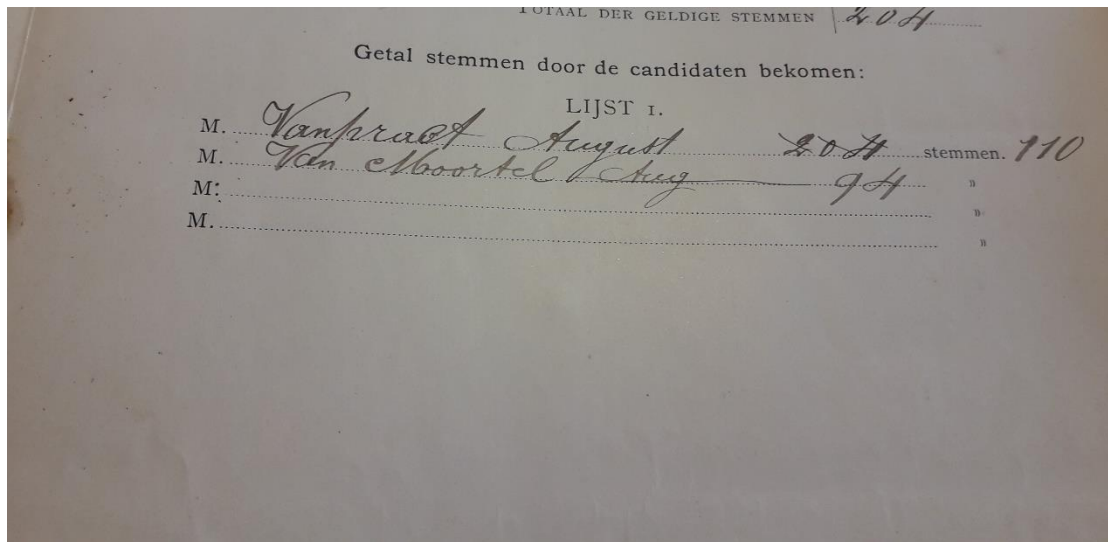 TOTAAL DER GELDIGE STEMMEN 204
Getal stemmen door de candidaten bekomen:
LIJST 1.
M. Vanpraet August 204 stemmen. 110
M. Van Moortel Aug 94 "
M. "
M. "